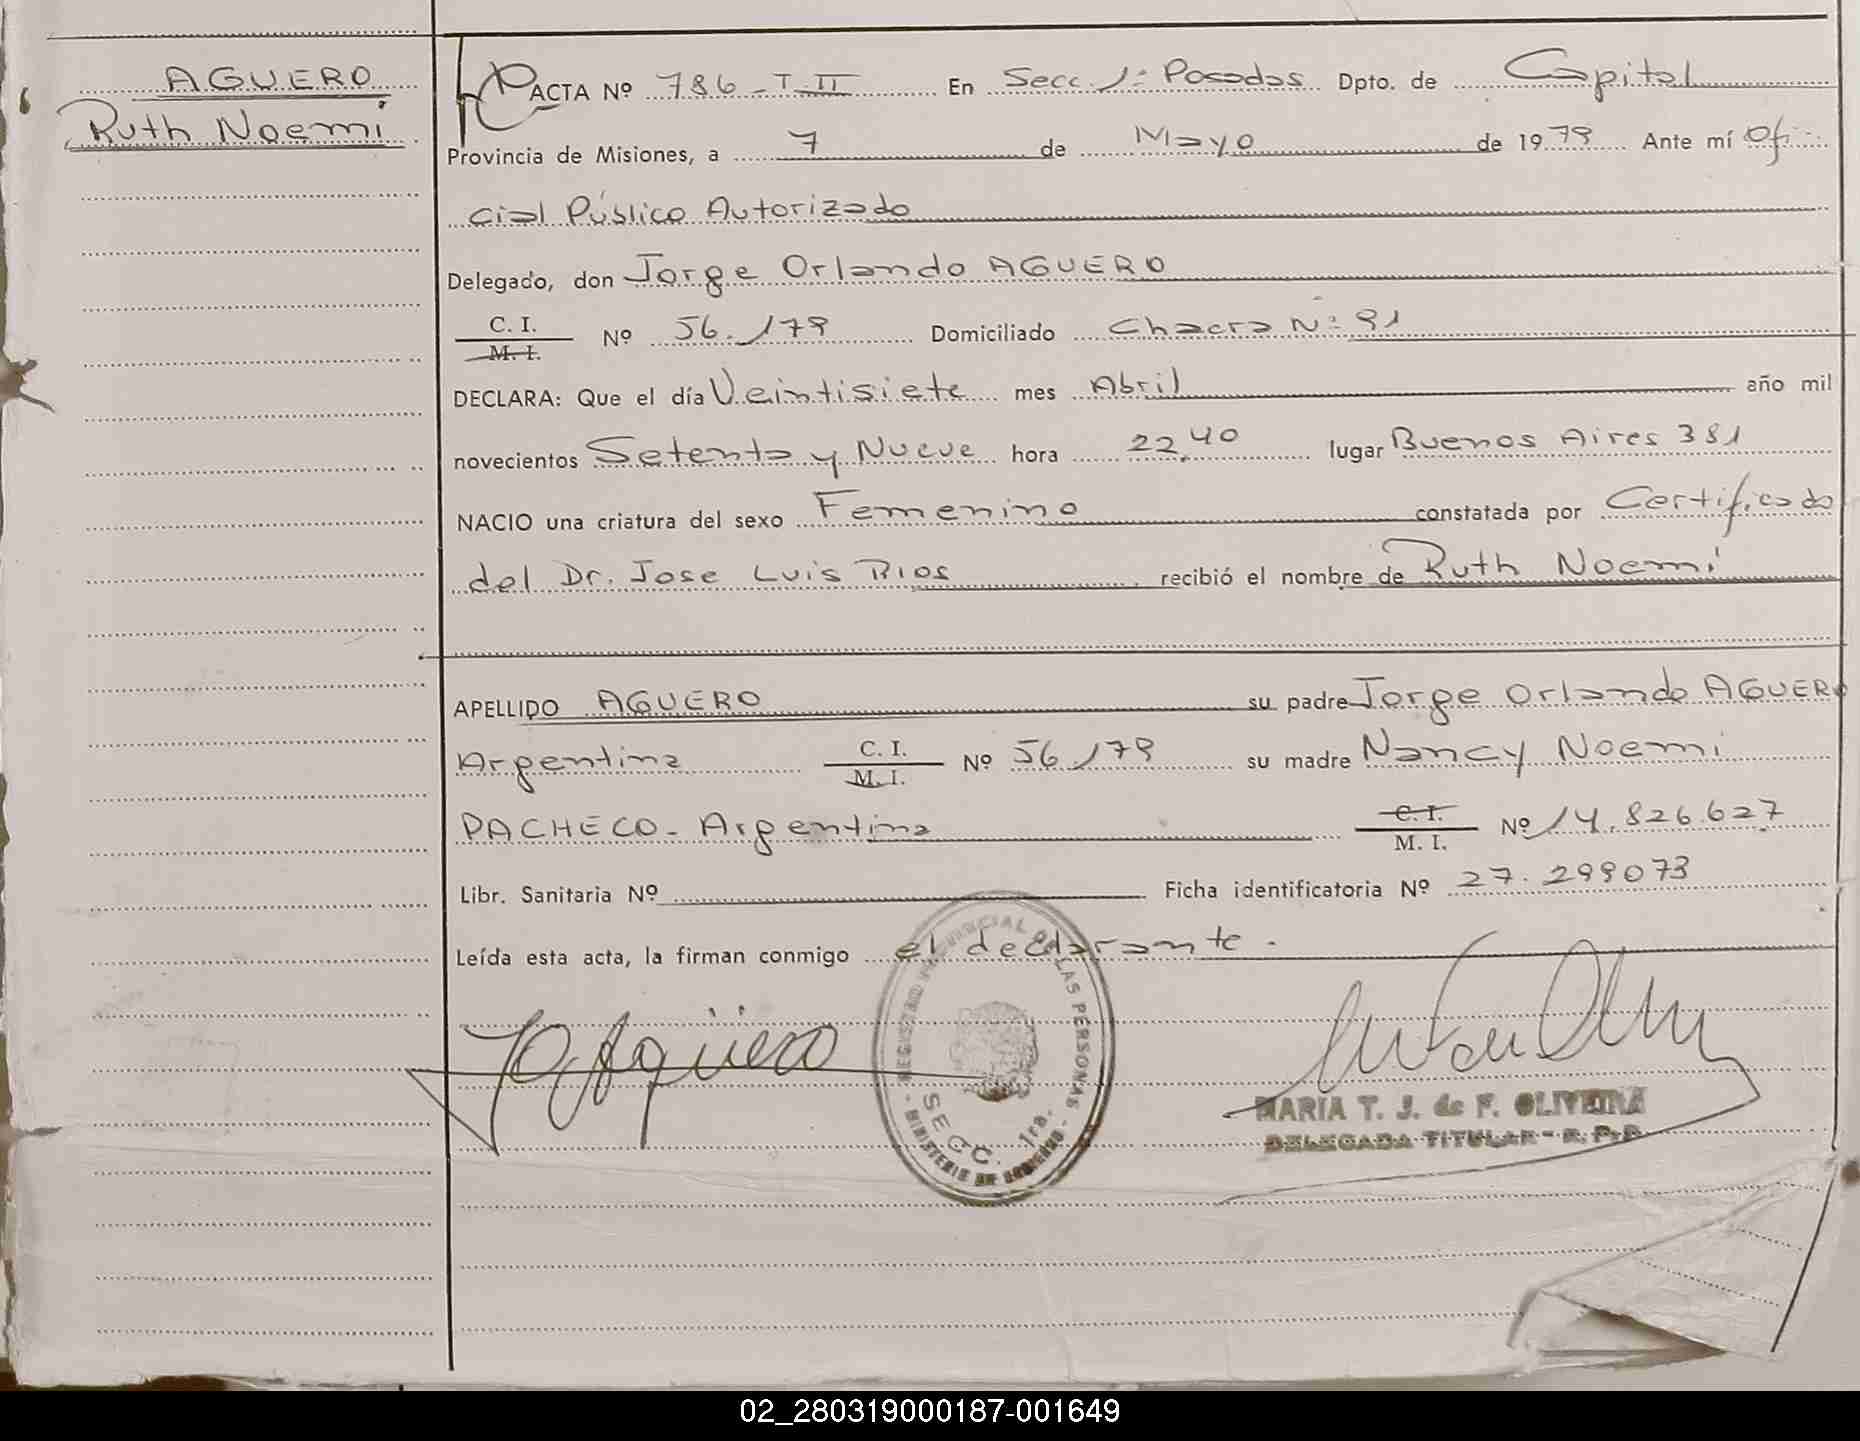 AGUERO
Ruth Noemí
ACTA Nº 786 - T II En Secc. 1ª Posadas Dpto. de Capital
Provincia de Misiones, a 7 de Mayo de 1979 Ante mí Ofi
cial Público Autorizado
Delegado, don Jorge Orlando AGUERO
C. I.
M. I.
Nº 56.179 Domiciliado Chacra Nº 91
DECLARA: Que el día Veintisiete mes Abril año mil
novecientos Setenta y Nueve hora 22,40 lugar Buenos Aires 381
NACIO una criatura del sexo Femenino constatada por Certificado
del Dr. Jose Luis Rios recibió el nombre de Ruth Noemí
APELLIDO AGUERO su padre Jorge Orlando AGUERO
Argentina C. I. M. I. Nº 56.179 su madre Nancy Noemi
PACHECO - Argentina C. I. M. I. Nº 14.826.627
Libr. Sanitaria Nº Ficha identificatoria Nº 27.299073
Leída esta acta, la firman conmigo el declarante.
Agüero
REGISTRO PROVINCIAL DE LAS PERSONAS
SECC. 1ra.
MINISTERIO DE GOBIERNO
MARIA T. J. de F. OLIVEIRA
DELEGADA TITULAR - R. P. P.
02_280319000187-001649